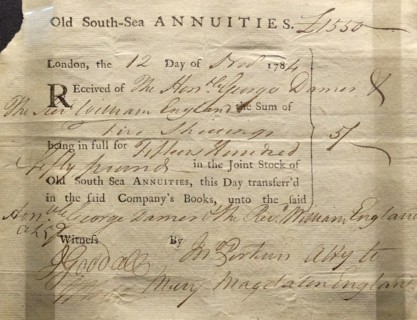 Old South-Sea ANNUITIES. £1550
London, the 12 Day of Nov 1784
Received of The Honble George Damer &
The Revd William England the Sum of
five Shillings 5/
being in full for Fifteen Hundred
& fifty pounds in the Joint Stock of
Old South Sea ANNUITIES, this Day transferr'd
in the said Company's Books, unto the said
Honble George Damer & The Revd William England
Witness By Jno Perkins Atty to
J Goodall Mary Magdalen England